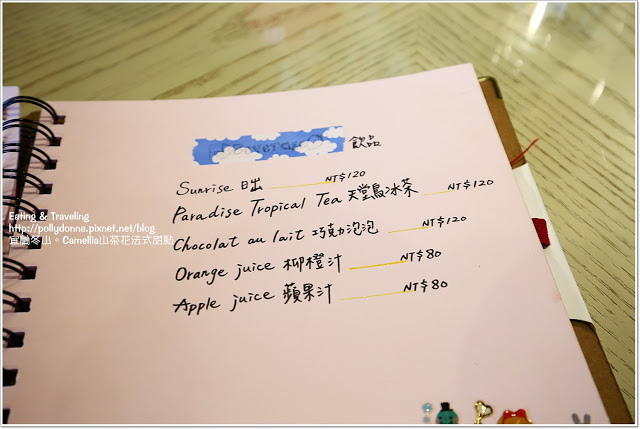 Beverage 飲品
Sunrise 日出 NT$120
Paradise Tropical Tea 天堂鳥冰茶 NT$120
Chocolat au lait 巧克泡泡 NT$120
Orange juice 柳橙汁 NT$80
Apple juice 蘋果汁 NT$80
Eating & Traveling
http://pollydonna.pixnet.net/blog
宜蘭冬山。Camellia山茶花法式甜點